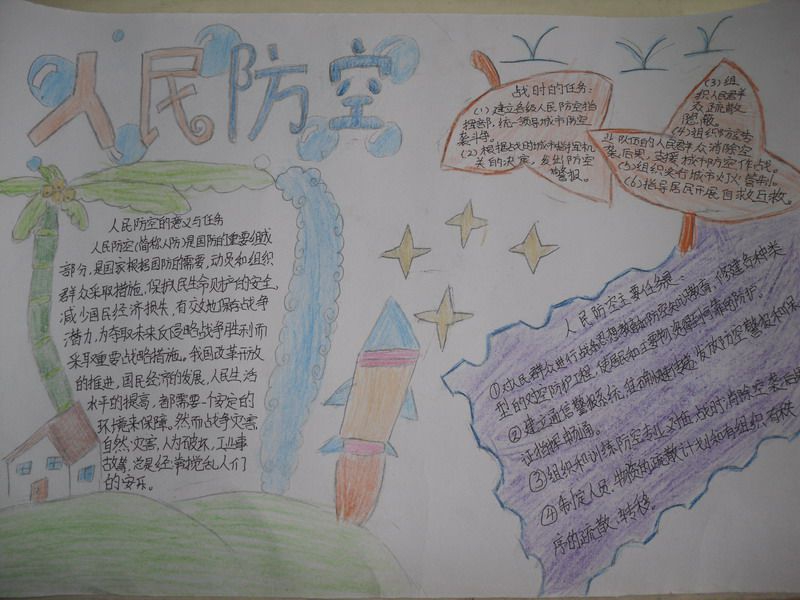 人民防空
人民防空的意义与任务
人民防空(简称人防)是国防的重要组成
部分,是国家根据国防的需要,动员和组织
群众采取措施,保护人民生命财产的安全,
减少国民经济损失,有效地保存战争
潜力,为夺取未来反侵略战争胜利而
采取重要战略措施。我国改革开放
的推进,国民经济的发展,人民生活
水平的提高,都需要一个安定的
环境来保障。然而战争灾害,
自然灾害,人为破坏,工业事
故等,总是经常搅乱人们
的安乐。
战时的任务:
(1)建立各级人民防空指
挥部,统一领导城市防空
袭斗争。
(2)根据战时城市指挥机
关的决定,发出防空
警报。
(3)组
织人民群
众疏散
隐蔽。
(4)组织防空专
业队伍的人民群众消除空
袭后果,支援城市防空作战。
(5)组织实行城市灯火管制。
(6)指导居民开展自救互救。
人民防空主要任务是:
①对人民群众进行战备思想教育和防空知识教育,修建各种类
型的对空防护工程,使居民和主要物资得到可靠的防护。
②建立通信警报系统,准确快速传递发放防空警报和保
证指挥畅通。
③组织和训练防空专业义伍,战时消除空袭后果
④制定人员、物资的疏散计划和有组织有秩
序的疏散、转移。